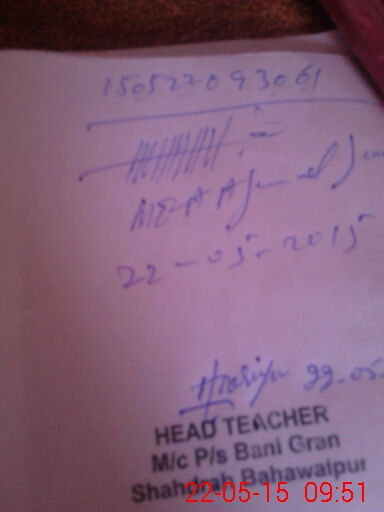 150522093061
MEA
22-05-2015
22-05-
HEAD TEACHER
M/c P/s Bani Gran
Bahawalpur
22-05-15 09:51